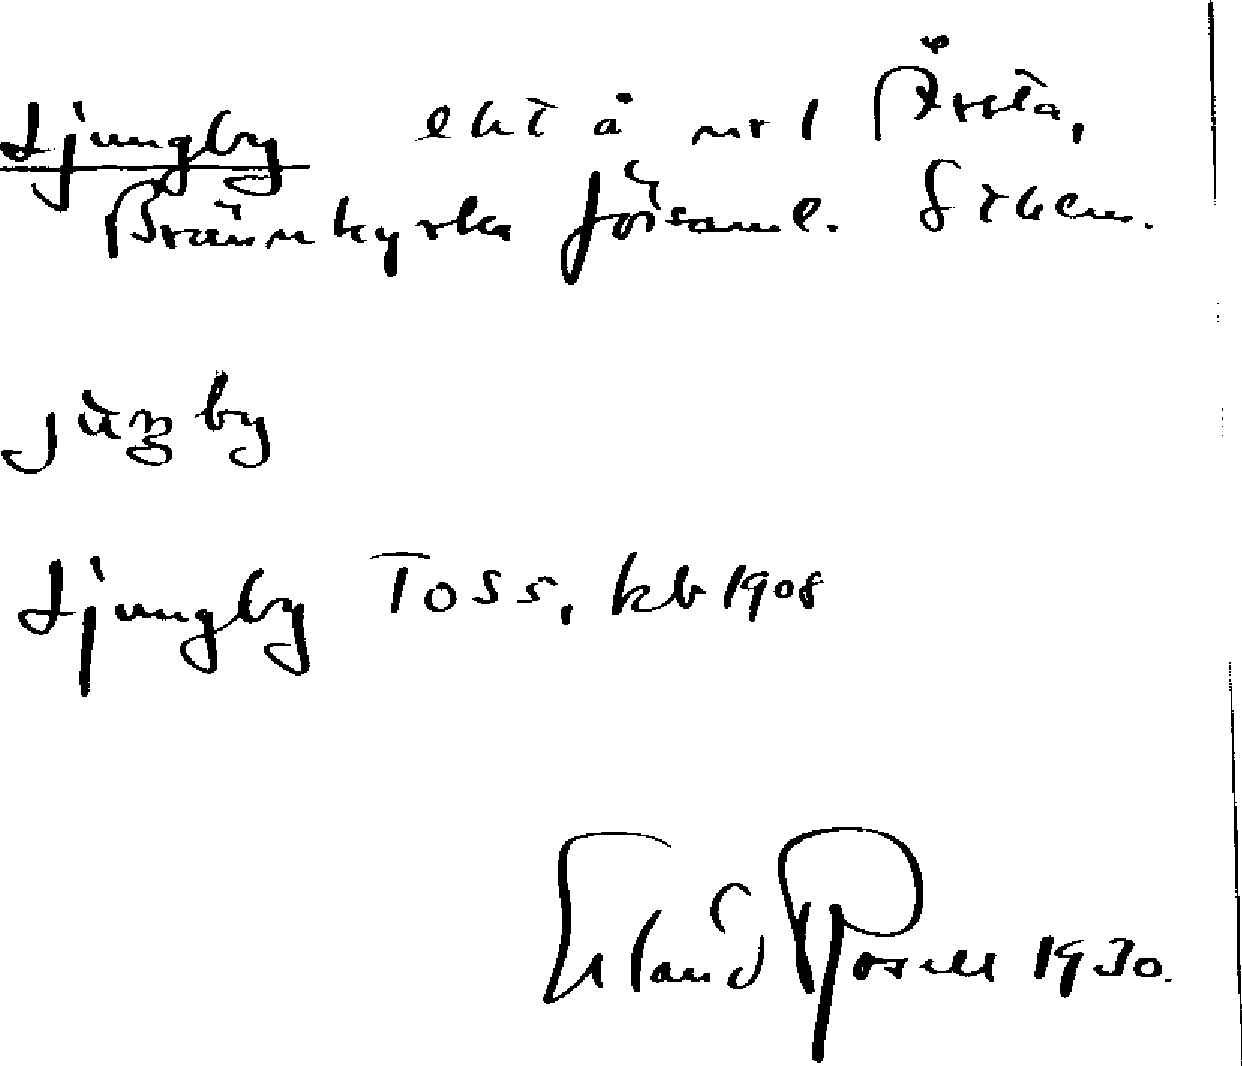 Ljungby eht å nr 1 Årsta,
Brännkyrka församl. Sthlm.
jùŋby
Ljungby Toss, kb 1908
Erland Rosell 1930.